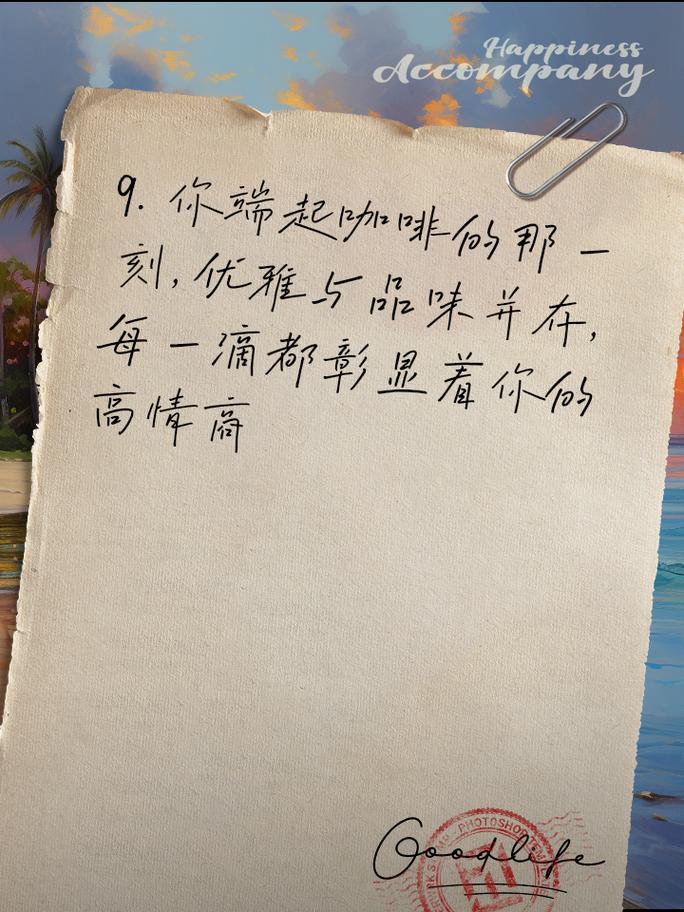 Happiness
Accompany
9. 你端起咖啡的那一
刻,优雅与品味并存,
每一滴都彰显着你的
高情商
PHOTOSHOP
Goodlife